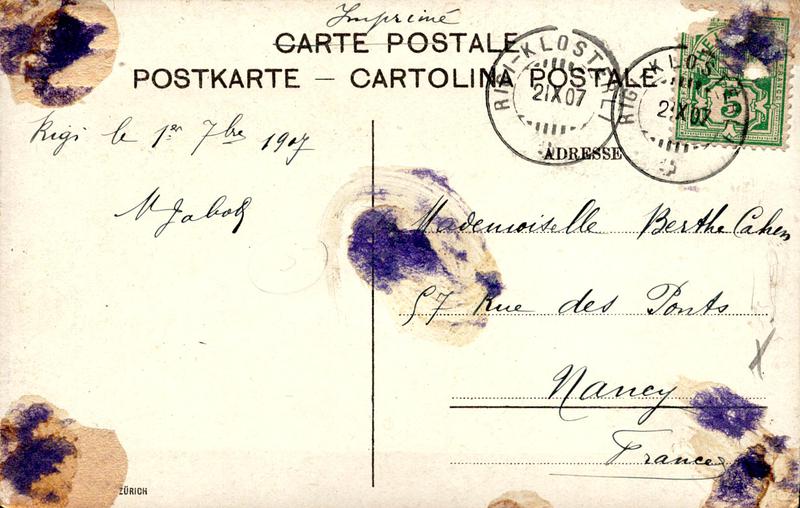 Imprimé
CARTE POSTALE
POSTKARTE — CARTOLINA POSTALE
RIGI-KLÖSTERLI
2 IX 07
RIGI-KLÖSTERLI
2 IX 07
5
ADRESSE
Rigi le 1er 7bre 1907
Mademoiselle Berthe Cahen
57 Rue des Ponts
Nancy
France
ZÜRICH